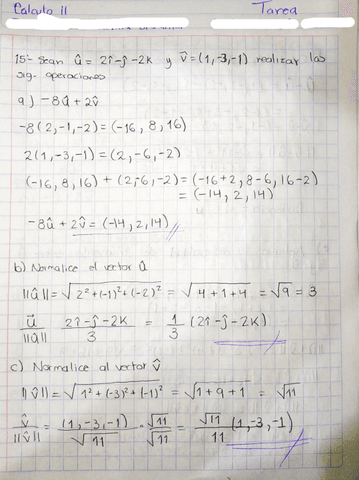 Calculo II Tarea
15- Sean û = 2î-ĵ-2k y v⃗=(1,-3,-1) realizar las
sig. operaciones
a) -8û+2v̂
-8(2,-1,-2)=(-16, 8, 16)
2(1,-3,-1)=(2,-6,-2)
(-16,8,16) + (2,-6,-2)=(-16+2, 8-6, 16-2)
= (-14, 2, 14)
-8û+2v̂=(-14,2,14)
b) Normalice el vector û
||û||=√2²+(-1)²+(-2)² = √4+1+4 = √9 = 3
u⃗/||û|| 2î-ĵ-2k/3 = 1/3 (2î-ĵ-2k)
c) Normalice al vector v̂
||v̂||=√1²+(-3)²+(-1)² = √1+9+1 = √11
v̂/||v̂|| = (1,-3,-1)/√11 · √11/√11 = √11/11 (1,-3,-1)